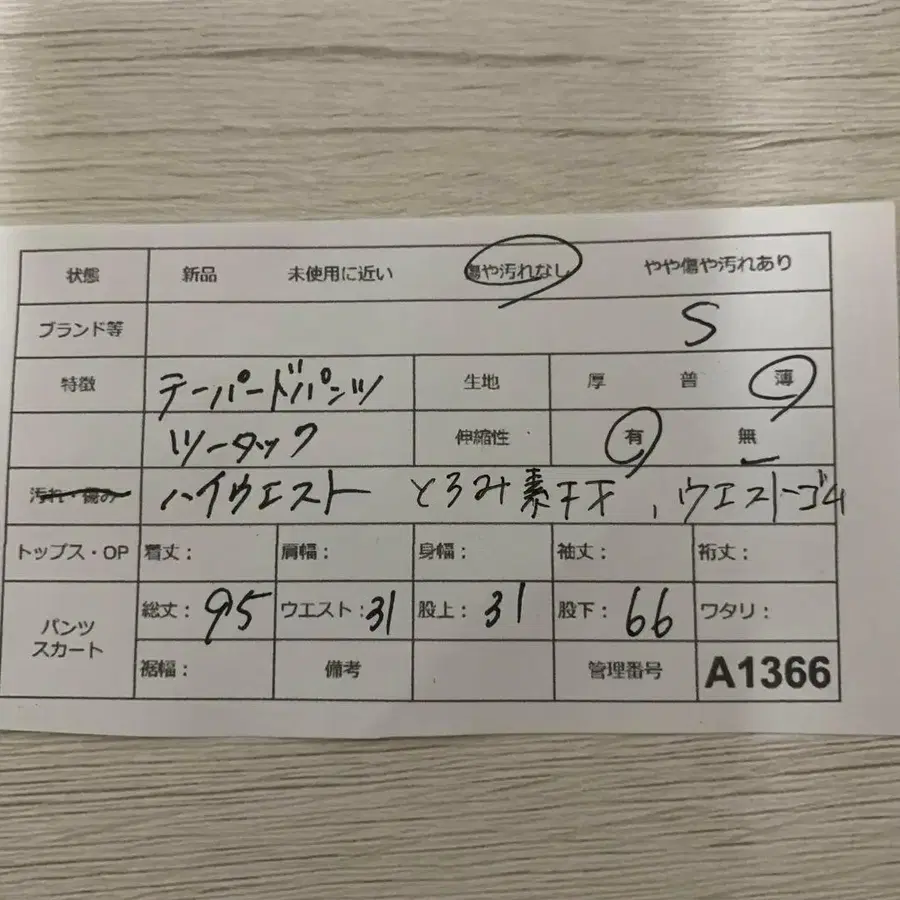 状態 新品 未使用に近い 傷や汚れなし やや傷や汚れあり
ブランド等 S
特徴 テーパードパンツ 生地 厚 普 薄
ツータック 伸縮性 有 無
汚れ・傷み ハイウエスト とろみ素材、ウエストゴム
トップス・OP 着丈： 肩幅： 身幅： 袖丈： 裄丈：
パンツ スカート 総丈：95 ウエスト：31 股上：31 股下：66 ワタリ：
裾幅： 備考 管理番号 A1366